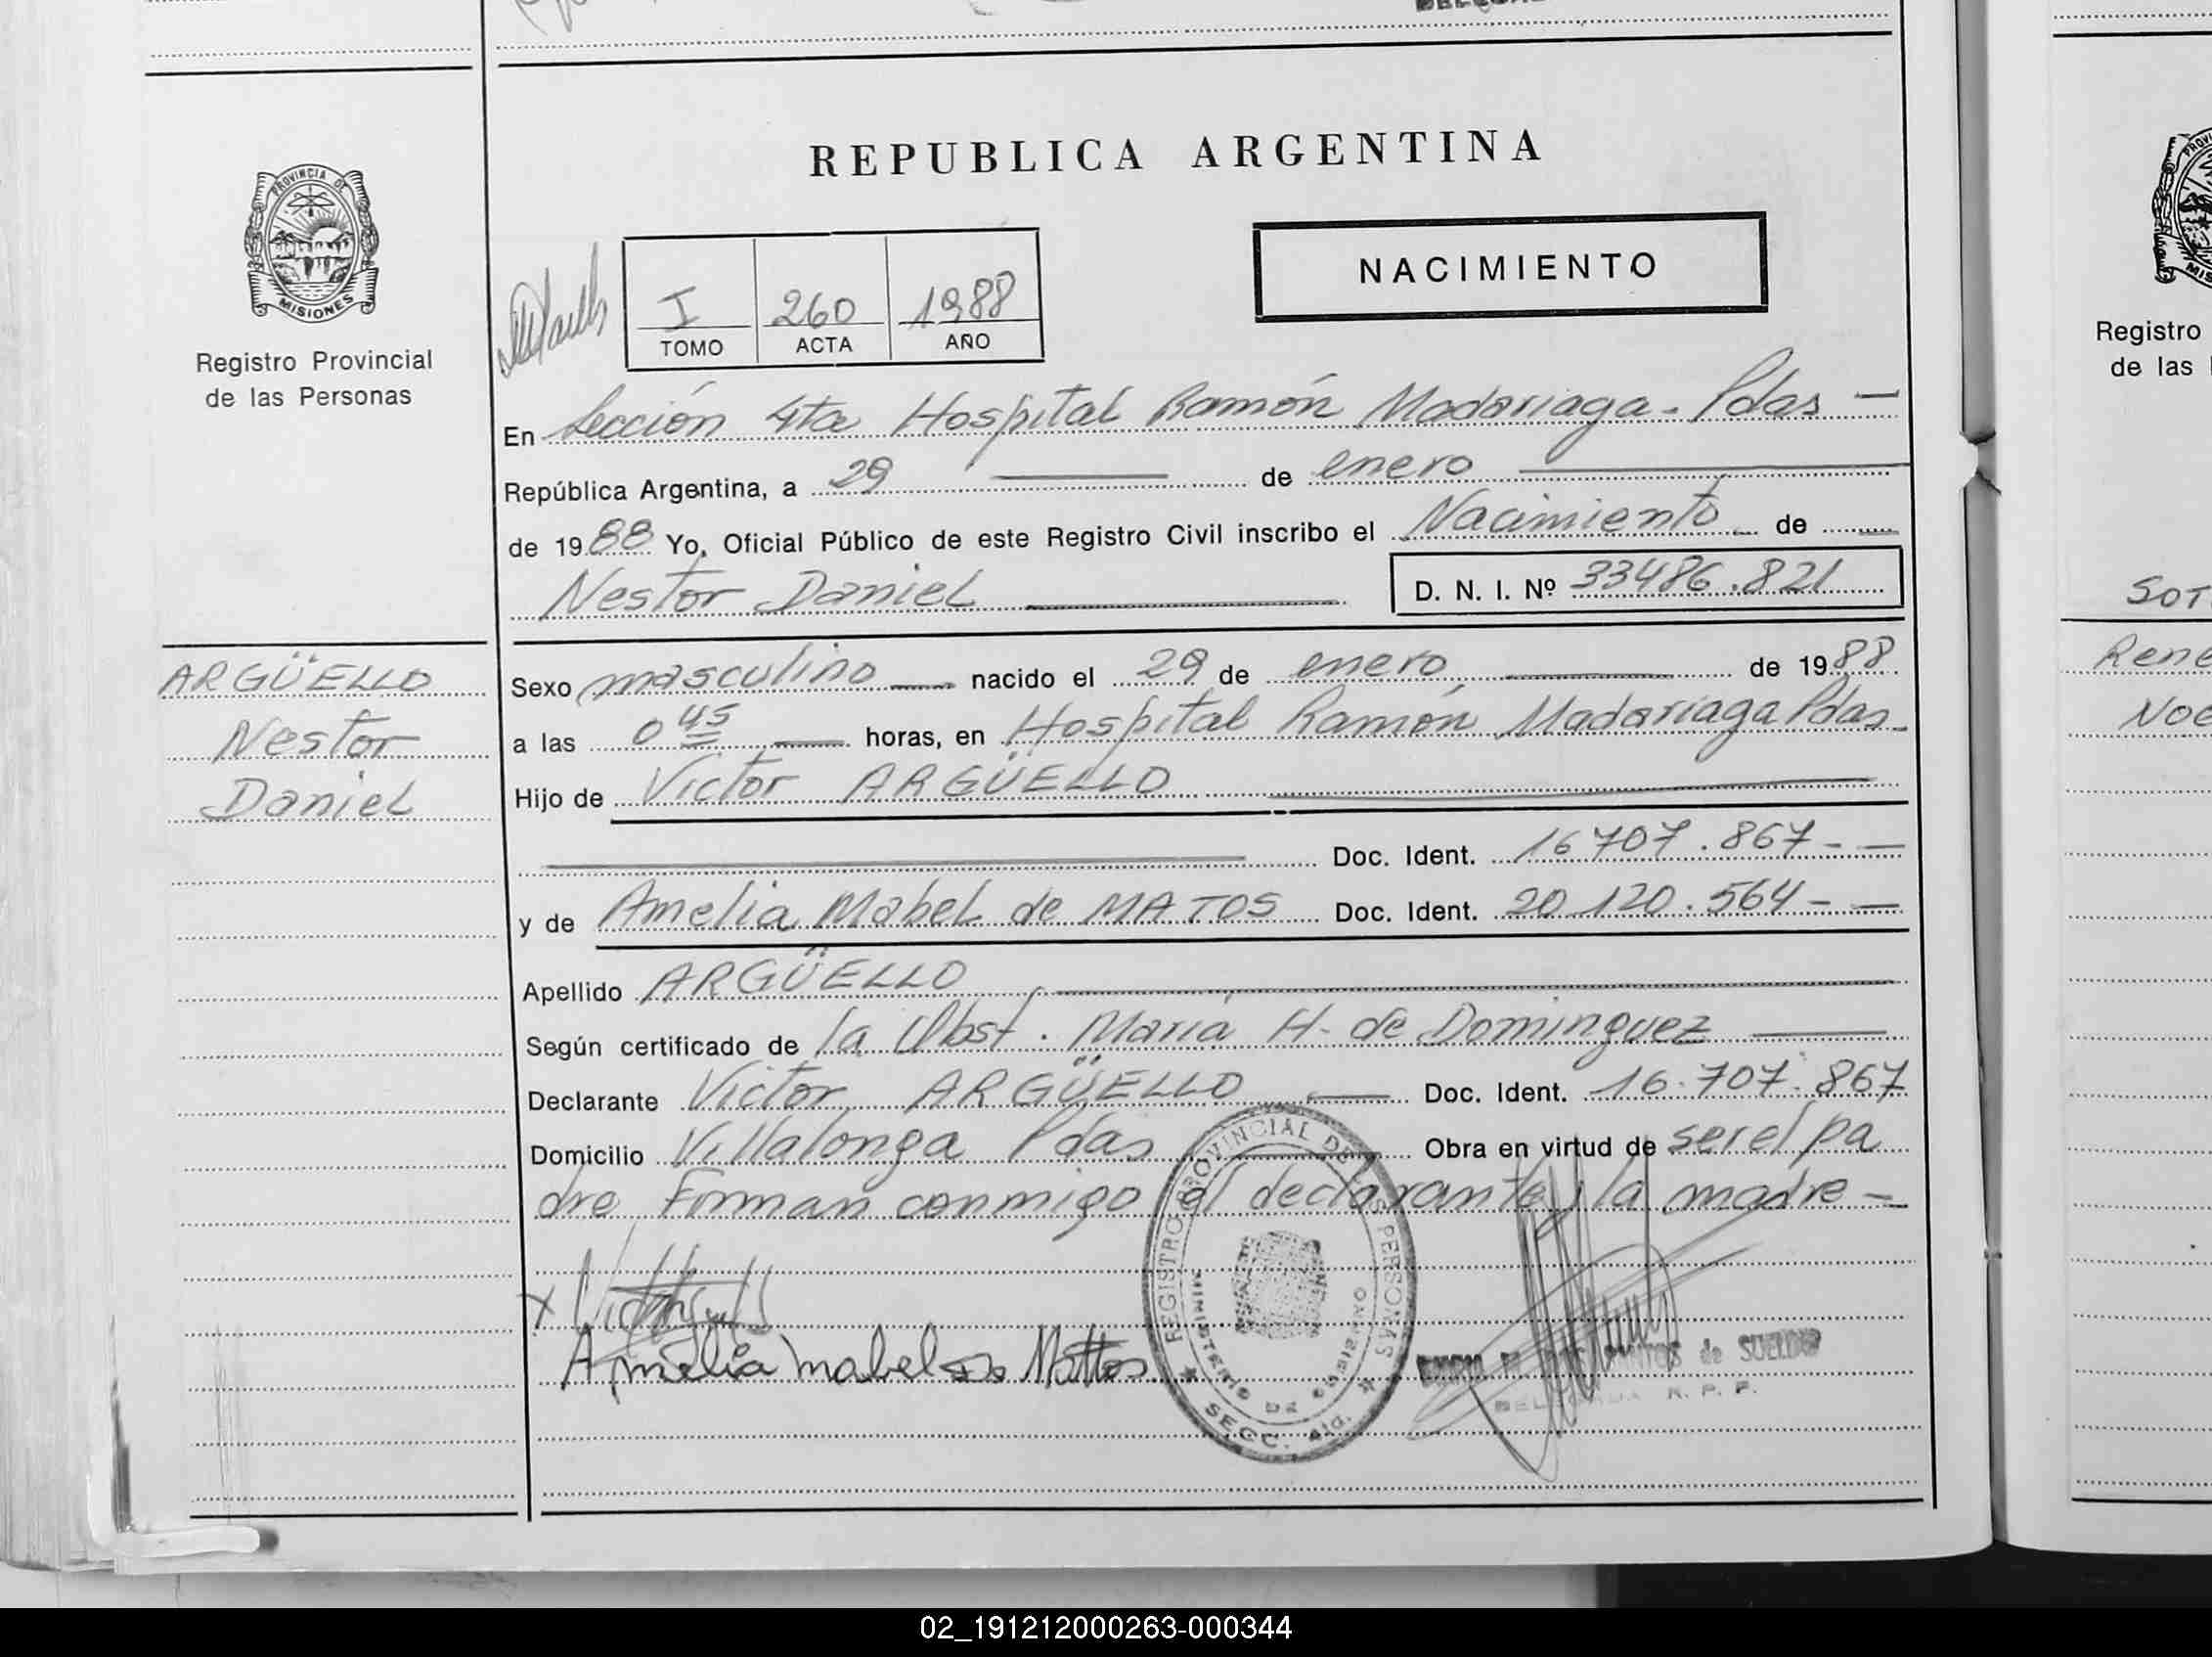 REPUBLICA ARGENTINA
PROVINCIA DE
MISIONES
Registro Provincial
de las Personas
NACIMIENTO
I 260 1988
TOMO ACTA AÑO
En Sección 4ta Hospital Ramón Madariaga - Pdas —
República Argentina, a 29 de enero
de 1988 Yo, Oficial Público de este Registro Civil inscribo el Nacimiento de
Nestor Daniel D. N. I. Nº 33486.821
ARGÜELLO
Nestor
Daniel
Sexo masculino nacido el 29 de enero de 1988
a las 0 45 horas, en Hospital Ramón Madariaga Pdas.
Hijo de Victor ARGÜELLO
Doc. Ident. 16 707.867 - —
y de Amelia Mabel de MATOS Doc. Ident. 20 120.564 - —
Apellido ARGÜELLO
Según certificado de la Obst. Maria H. de Dominguez
Declarante Victor ARGÜELLO Doc. Ident. 16.707.867
Domicilio Villalonga Pdas Obra en virtud de ser el pa
dre Firman conmigo el declarante y la madre -
Amelia mabel de Mattos
REGISTRO PROVINCIAL DE LAS PERSONAS
MINISTERIO DE GOBIERNO
SECC. 4ta.
de SUELDO
R. P. P.
Registro
de las
SOT
Rene
Noe
02_191212000263-000344